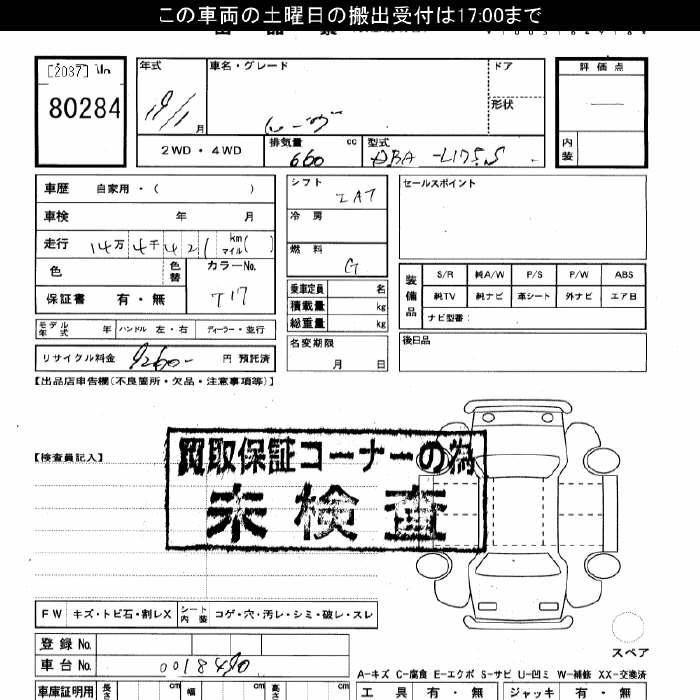 この車両の土曜日の搬出受付は17:00まで
[2037]
80284
年式
月
車名・グレード
ドア
形状
評価点
内装
2WD・4WD
排気量 660 cc
型式 DBA-L175S
車歴 自家用・( )
車検 年 月
走行 14万4千421 km マイル( )
色
色替
カラーNo.
T17
保証書 有・無
モデル年式 年
ハンドル 左・右
ディーラー・並行
リサイクル料金 9260- 円 預託済
シフト IAT
冷房
燃料 G
乗車定員 名
積載量 kg
総重量 kg
名変期限
月 日
セールスポイント
装備品
S/R 純A/W P/S P/W ABS
純TV 純ナビ 革シート 外ナビ エアB
ナビ型番:
後日品
【出品店申告欄(不良箇所・欠品・注意事項等)】
【検査員記入】
買取保証コーナーの為
未検査
FW キズ・トビ石・割レX シート内装 コゲ・穴・汚レ・シミ・破レ・スレ
登録No.
車台No. 0018490
スペア
A-キズ C-腐食 E-エクボ S-サビ U-凹ミ W-補修 XX-交換済
車庫証明用 長さ cm 幅 cm 高さ cm
工具 有・無 ジャッキ 有・無